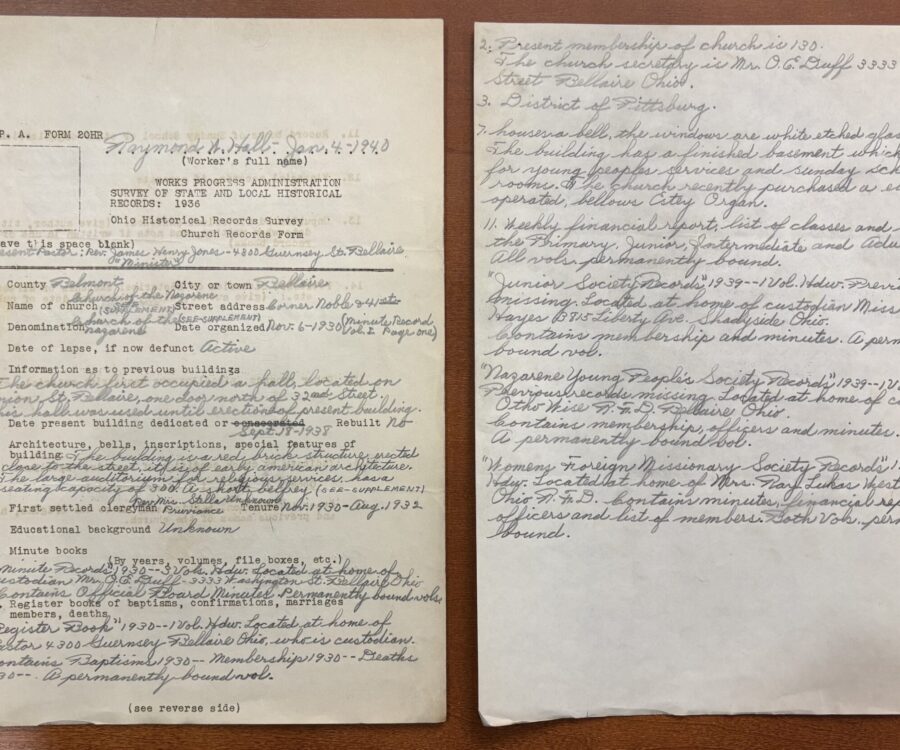 P. A. FORM 20HR
Raymond N. Hall - Jan. 4 - 1940
(Worker's full name)
WORKS PROGRESS ADMINISTRATION
SURVEY OF STATE AND LOCAL HISTORICAL
RECORDS: 1936
Ohio Historical Records Survey
Church Records Form
ave this space blank)
esent Pastor: Rev. James Henry Jones - 4300 Guernsey St. Bellaire
"Minister"
County Belmont City or town Bellaire
Church of the Nazarene
Name of church (SEE-SUPPLEMENT) Street address Corner Noble & 41st
Church of the (SEE-SUPPLEMENT)
Denomination Nazarene Date organized Nov. 6-1930 (Minute Record Vol. 1 Page one)
Date of lapse, if now defunct Active
Information as to previous buildings
The church first occupied a hall, located on
nion St. Bellaire, one door north of 32nd Street.
his hall was used until erection of present building.
Date present building dedicated or consecrated Rebuilt No
Sept. 18-1938
Architecture, bells, inscriptions, special features of
building The building is a red brick structure, erected
close to the street, it is of early american architecture.
The large auditorium for religious services, has a
seating capacity of 300. A short belfrey (SEE-SUPPLEMENT)
Rev. Mrs. Stella Unknown
First settled clergyman Tenure Nov. 1930 - Aug. 1932
Educational background Unknown
Minute books
(By years, volumes, file boxes, etc.)
Minute Records 1930--3 Vols. Hdw. Located at home of
ustodian Mr. O.E. Duff-3333 Washington St. Bellaire Ohio
Contains Official Board Minutes. Permanently bound vols.
Register books of baptisms, confirmations, marriages
members, deaths
Register Book" 1930--1 Vol. Hdw. Located at home of
astor 4300 Guernsey Bellaire Ohio, who is custodian.
ontains Baptisms 1930-- Membership 1930-- Deaths
30--. A permanently bound vol.
(see reverse side)
2. Present membership of church is 130.
The church secretary is Mr. O.E. Duff 3333
Street Bellaire Ohio.
3. District of Pittsburg.
7. houses a bell, the windows are white etched glas
The building has a finished basement which
for young peoples services and sunday sch
rooms. The church recently purchased a
operated, bellows Estey Organ.
11. Weekly financial report, list of classes and
the Primary, Junior, Intermediate and Adu
All vols. permanently bound.
"Junior Society Records" 1939--1 Vol. Hdw. Previ
missing. Located at home of custodian Miss
Hayes 3715 Liberty Ave. Shadyside Ohio.
Contains membership and minutes. A perm
bound vol.
"Nazarene Young People's Society Records" 1939--1 Vo
Previous records missing. Located at home of c
Otho Wise R.F.D. Bellaire Ohio.
Contains membership, officers and minutes.
A permanently bound vol.
"Womens Foreign Missionary Society Records" 1
Hdw. Located at home of Mrs. Mary Lukas West
Ohio R.F.D. Contains minutes, financial rep
officers and list of members. Both Vols. perm
bound.